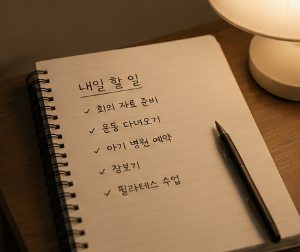 내일 할 일
✓ 회의 자료 준비
✓ 운동 다녀오기
✓ 아기 병원 예약
✓ 장보기
✓ 필라테스 수업